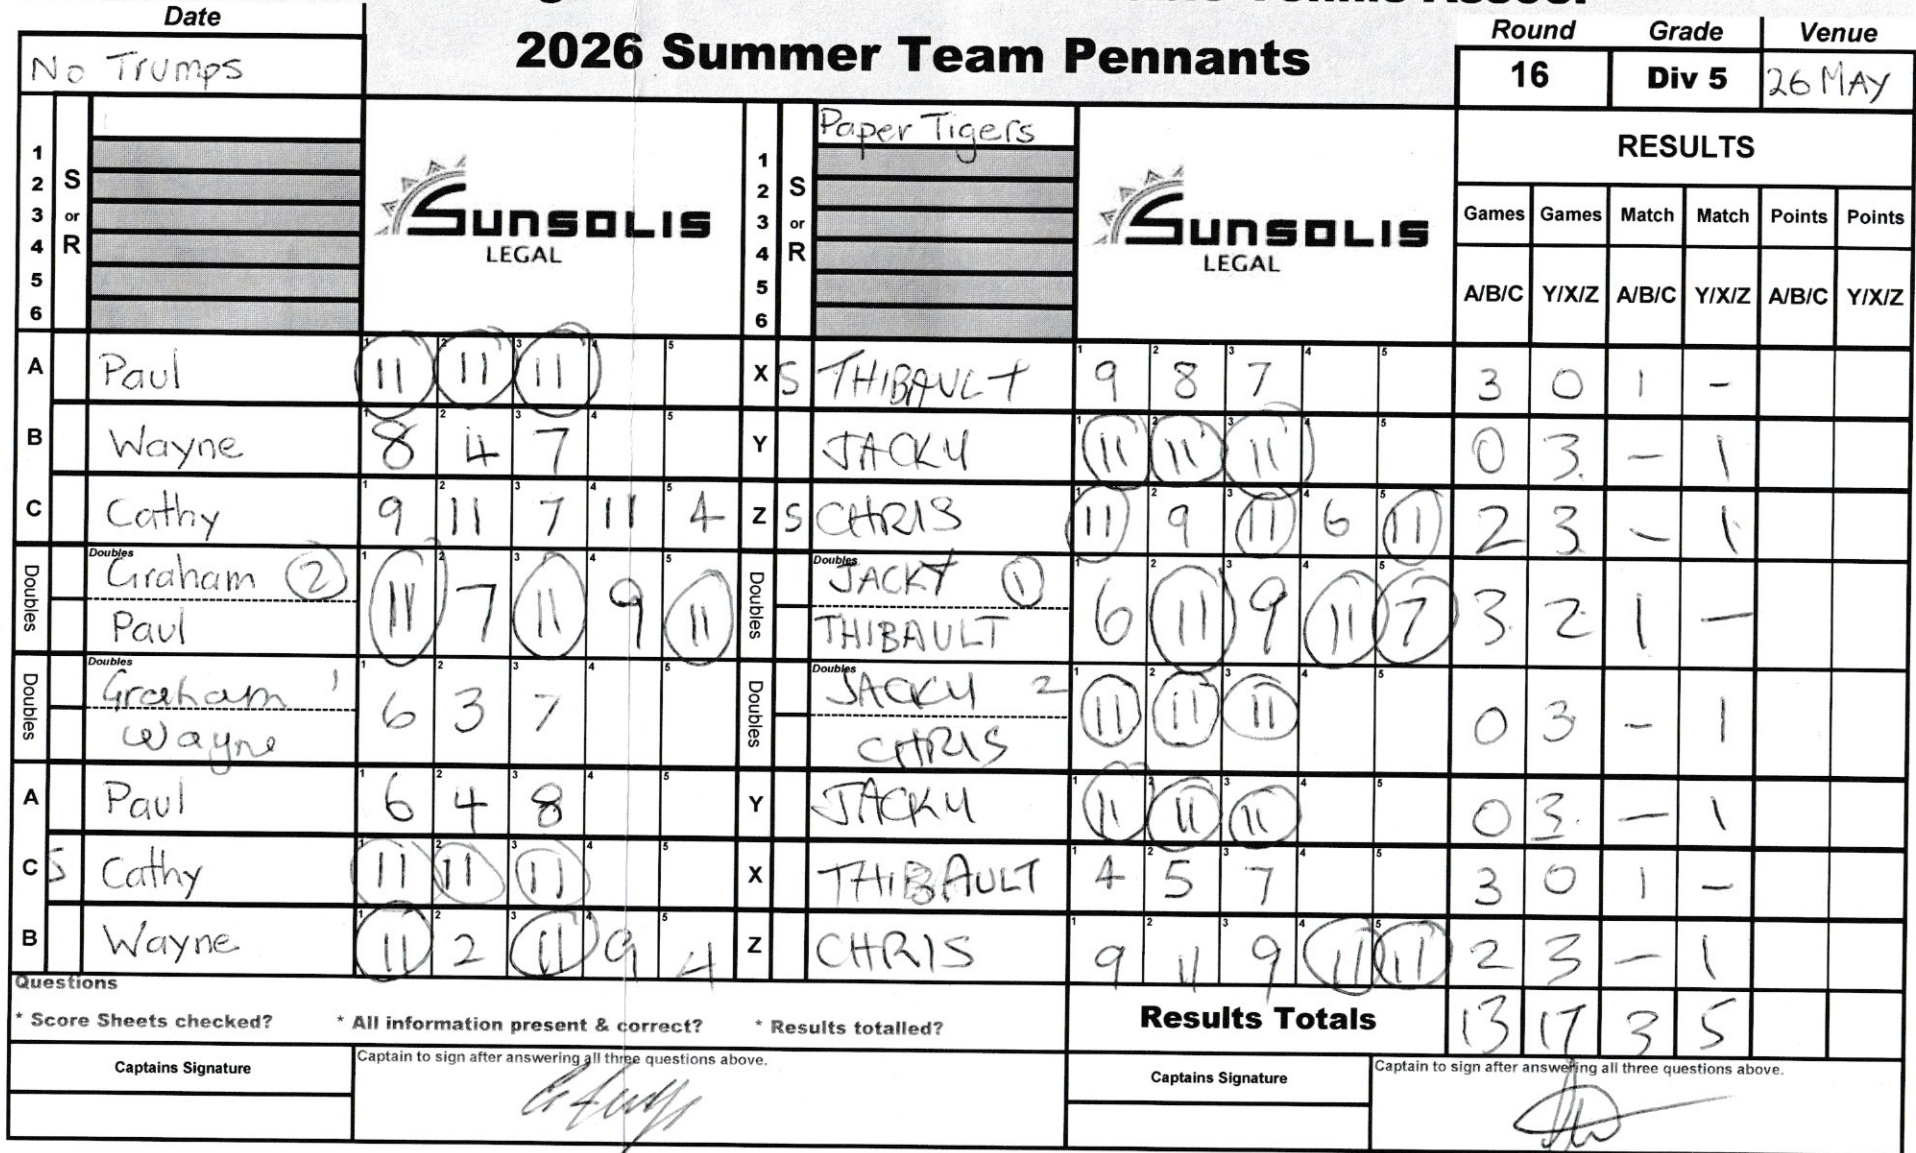 Date
2026 Summer Team Pennants
Round Grade Venue
No Trumps
16 Div 5 26 MAY
Paper Tigers
RESULTS
1 2 3 4 5 6
S or R
SUNSOLIS
LEGAL
1 2 3 4 5 6
S or R
SUNSOLIS
LEGAL
Games Games Match Match Points Points
A/B/C Y/X/Z A/B/C Y/X/Z A/B/C Y/X/Z
A Paul 11 11 11 X S THIBAULT 9 8 7 3 0 1 -
B Wayne 8 4 7 Y JACKY 11 11 11 0 3 - 1
C Cathy 9 11 7 11 4 Z S CHRIS 11 9 11 6 11 2 3 - 1
Doubles Doubles Graham 2 11 7 11 9 11 Doubles Doubles JACKY 1 6 11 9 11 7 3 2 1 -
Paul THIBAULT
Doubles Doubles Graham 1 6 3 7 Doubles Doubles JACKY 2 11 11 11 0 3 - 1
Wayne CHRIS
A Paul 6 4 8 Y JACKY 11 11 11 0 3 - 1
C S Cathy 11 11 11 X THIBAULT 4 5 7 3 0 1 -
B Wayne 11 2 11 9 4 Z CHRIS 9 11 9 11 11 2 3 - 1
Questions
* Score Sheets checked? * All information present & correct? * Results totalled?
Results Totals 13 17 3 5
Captains Signature Captain to sign after answering all three questions above.
Captains Signature Captain to sign after answering all three questions above.